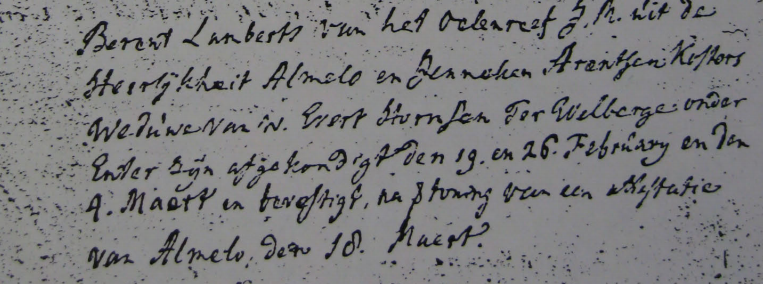 Berent Lamberts van het Oelenreef J.M. uit de
Heerlijkheit Almelo en Jenneken Arentsen Kosters
Weduwe van w. Evert Hornsen Ter Welberge onder
Enter zijn afgekondigt den 19. en 26. February en den
4. Maert en bevestigt, na vertoning van een attestatie
van Almelo, den 18. Maert.